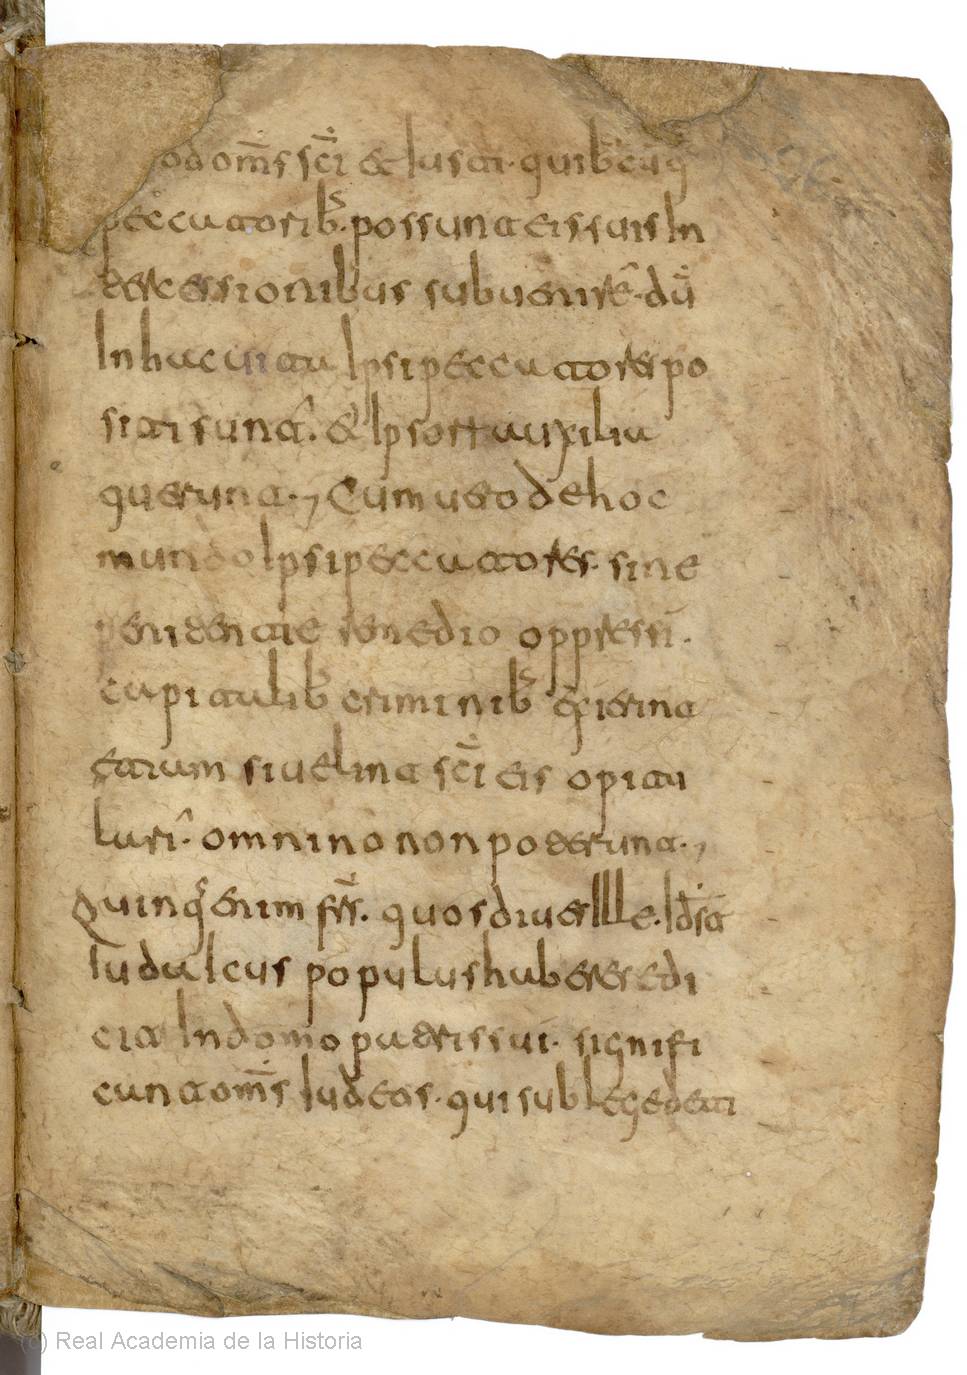 od om̄s sc̄i & Iusti · quibcūq
peccatorib̄s · possunt eis suis In
tercessionibus subuenire · dū
In hac uita Ipsi peccatores po
siti sunt · & Ipsorum auxilia
querunt · Cum uero de hoc
mundo Ipsi peccatores · sine
penitentie remedio oppressi ·
capitalib̄s criminib̄s exierint
etiam si uelint sc̄i eis opitu
lari · omnino non poterunt ·
Quinq enim frs̄ · quos diues Ille · Id ē
Iudaicus populus habere se di
cit In domo patris sui · signifi
cant om̄s Iudeos · qui sub lege dei
(c) Real Academia de la Historia